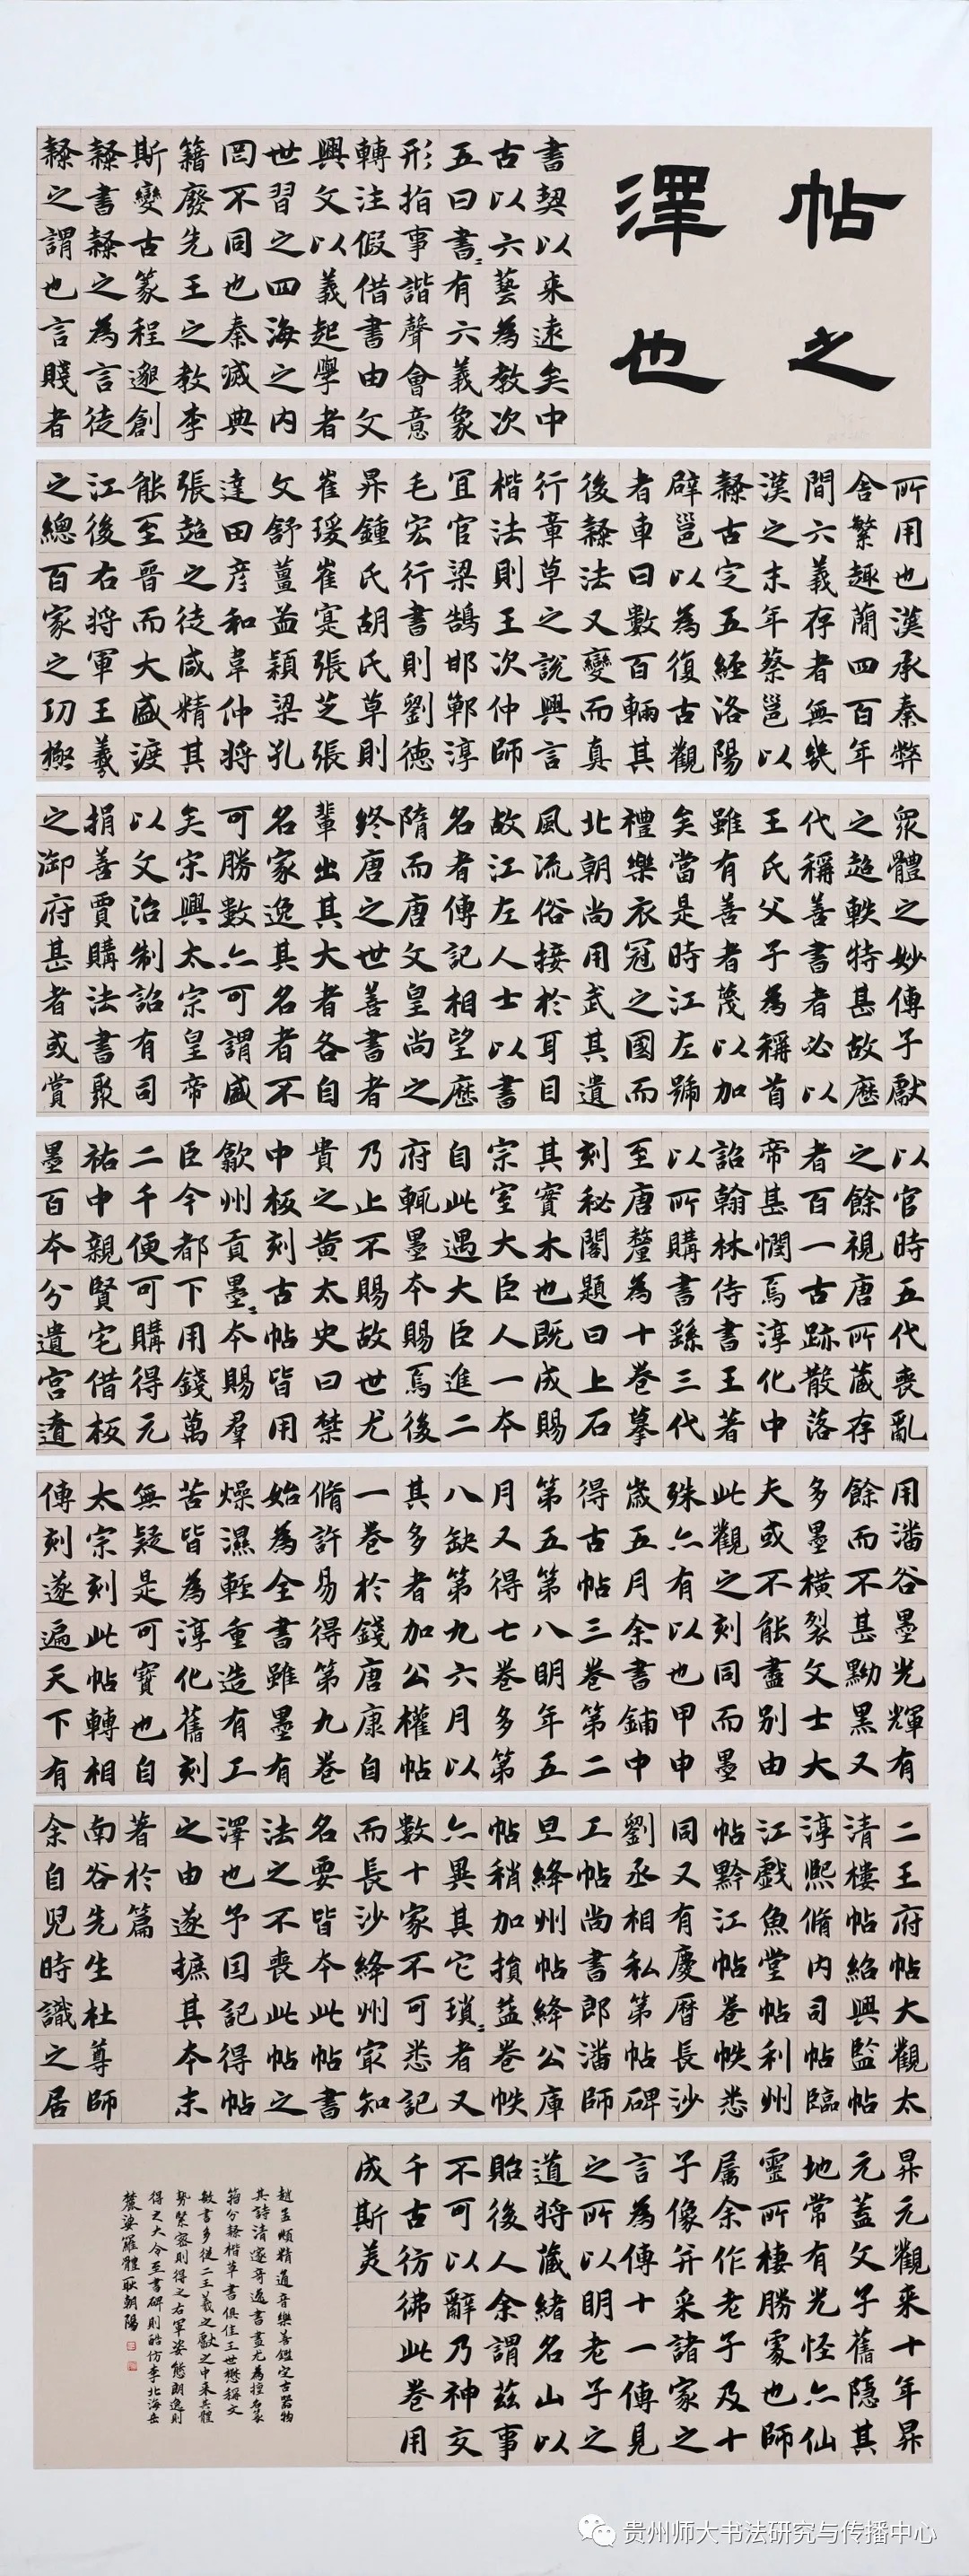 帖之
澤也
書契以來遠矣中
古以六藝為教次
五曰書〻有六義象
形指事諧聲會意
轉注假借書由文
興文以義起學者
世習之四海之内
罔不同也秦滅典
籍廢先王之教李
斯變古篆程邈創
隸書隸之為言徒
隸之謂也言賤者
所用也漢承秦弊
舍繁趣簡四百年
間六義存者無幾
漢之末年蔡邕以
隸古定五經洛陽
辟邕以為復古觀
者車日數百輛其
後隸法又變而真
行章草之說興言
楷法則王次仲師
宜官梁鵠邯鄲淳
毛宏行書則劉德
昇鍾氏胡氏草則
崔瑗崔寔張芝張
文舒薑益穎梁孔
達田彥和韋仲將
張超之徒咸精其
能至晉而大盛渡
江後右將軍王羲
之總百家之功極
眾體之妙傳子獻
之超軼特甚故歷
代稱善書者必以
王氏父子為稱首
雖有善者蔑以加
矣當是時江左號
禮樂衣冠之國而
北朝尚用武其遺
風流俗接於耳目
故江左人士以書
名者傳記相望歷
隋而唐文皇尚之
終唐之世善書者
輩出其大者各自
名家逸其名者不
可勝數亦可謂盛
矣宋興太宗皇帝
以文治制詔有司
捐善賈購法書聚
之御府甚者或賞
以官時五代喪亂
之餘視唐所藏存
者百一古跡散落
帝甚憫焉淳化中
詔翰林侍書王著
以所購書繇三代
至唐釐為十卷摹
刻秘閣題曰上石
其實木也既成賜
宗室大臣人一本
自此遇大臣進二
府輒墨本賜焉後
乃止不賜故世尤
貴之黃太史曰禁
中板刻古帖皆用
歙州貢墨〻本賜羣
臣今都下用錢萬
二千便可購得元
祐中親賢宅借板
墨百本分遺宮遼
用潘谷墨光輝有
餘而不甚黝黑又
多墨橫裂文士大
夫或不能盡別由
此觀之刻同而墨
殊亦有以也甲申
歲五月余書鋪中
得古帖三卷第二
第五第八明年五
月又得七卷多第
八缺第九六月以
其多者加公權帖
一卷於錢唐康自
脩許易得第九卷
始為全書雖墨有
燥濕輕重造有工
苦皆為淳化舊刻
無疑是可寶也自
太宗刻此帖轉相
傳刻遂遍天下有
二王府帖大觀太
清樓帖紹興監帖
淳熙脩内司帖臨
江戲魚堂帖利州
帖黔江帖卷帙悉
同又有慶曆長沙
劉丞相私第帖碑
工帖尚書郎潘師
旦絳州帖絳公庫
帖稍加損益卷帙
亦異其它瑣〻者又
數十家不可悉記
而長沙絳州最知
名要皆本此帖書
法之不喪此帖之
澤也予因記得帖
之由遂摭其本末
著於篇
南谷先生杜尊師
余自兒時識之居
昇元觀來十年昇
元蓋文子舊隱其
地常有光怪亦仙
靈所棲勝處也師
屬余作老子及十
子像并采諸家之
言為傳十一傳見
之所以明老子之
道將藏緒名山以
貽後人余謂茲事
不可以辭乃神交
千古彷彿此卷用
成斯美
趙孟頫精通音樂善鑑定古器物
其詩清邃奇逸書畫尤為擅名篆
籀分隸楷草書俱佳王世懋稱文
敏書多從二王羲之獻之中來其體
勢緊密則得之右軍姿態朗逸則
得之大令至書碑則酷仿李北海岳
麓娑羅體耿朝陽
贵州师大书法研究与传播中心